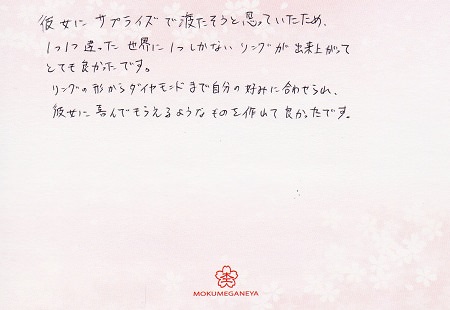 彼女にサプライズで渡たそうと思っていたため、
1つ1つ違った世界に1つしかないリングが出来上がって
とても良かったです。
リングの形からダイヤモンドまで自分の好みに合わせられ、
彼女に喜んでもらえるようなものを作れて良かったです。
MOKUMEGANEYA